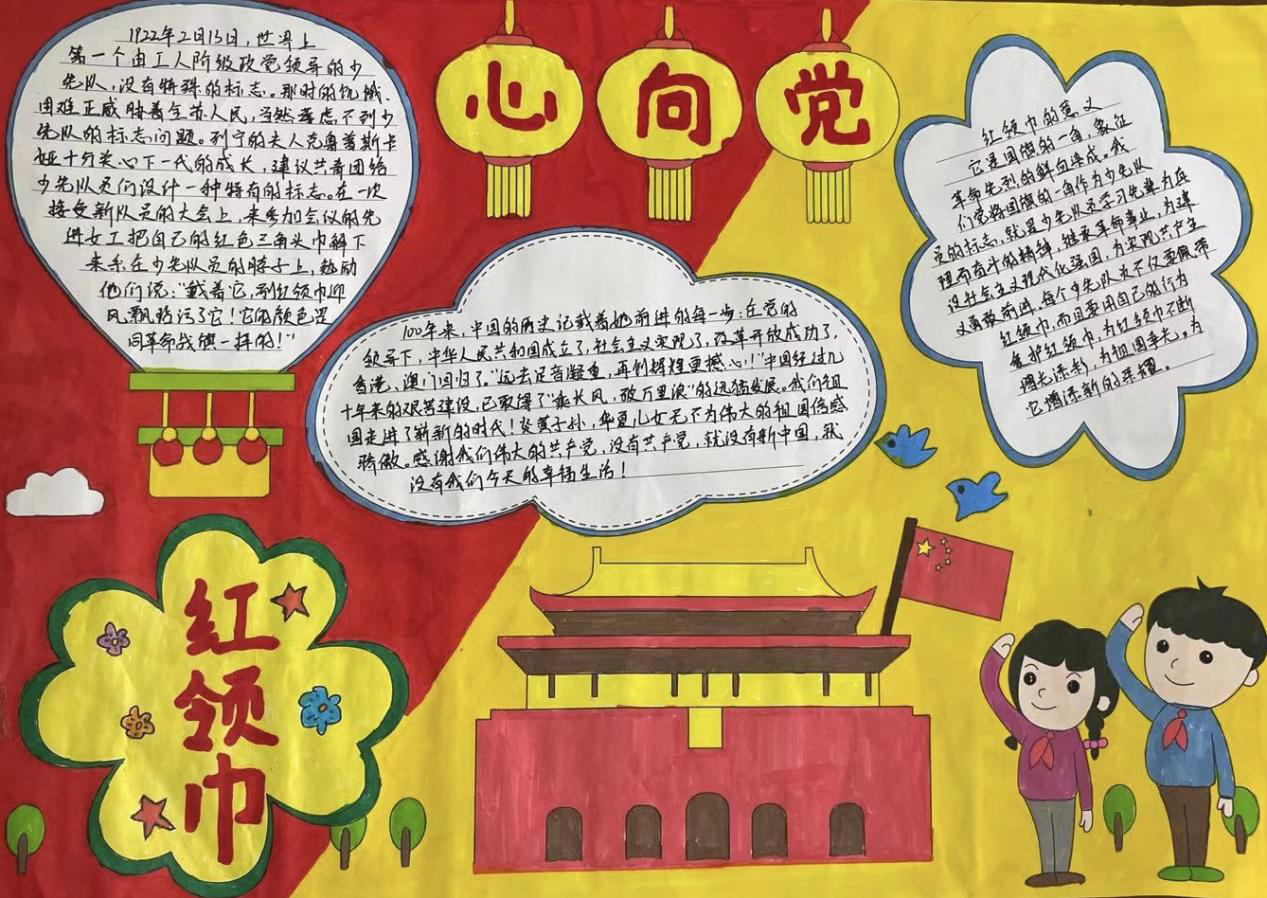 心向党
1922年2月15日，世界上
第一个由工人阶级政党领导的少
先队，没有特殊的标志。那时的饥饿、
困难正威胁着全苏人民，当然考虑不到少
先队的标志问题。列宁的夫人克鲁普斯卡
娅十分关心下一代的成长，建议共青团给
少先队员们设计一种特有的标志。在一次
接受新队员的大会上，来参加会议的先
进女工把自己的红色三角头巾解下
来系在少先队员的脖子上，勉励
他们说：“戴着它，别红领巾迎
风飘扬污了它！它的颜色是
同革命战旗一样的！”
100年来，中国的历史记载着她前进的每一步：在党的
领导下，中华人民共和国成立了，社会主义实现了，改革开放成功了，
香港、澳门回归了。“远去足音凝重，再创辉煌更撼心！”中国经过几
十年来的艰苦建设，已取得了“乘长风，破万里浪”的迅猛发展。我们祖
国走进了崭新的时代！炎黄子孙，华夏儿女无不为伟大的祖国倍感
骄傲。感谢我们伟大的共产党，没有共产党，就没有新中国，就
没有我们今天的幸福生活！
红领巾的意义
它是国旗的一角，象征
革命先烈的鲜血染成。我
们党将国旗的一角作为少先队
员的标志，就是少先队员学习先辈为真
理而奋斗的精神，继承革命事业，为建
设社会主义现代化强国，为实现共产主
义勇敢前进，每个少先队员不仅要佩带
红领巾，而且要用自己的行为
爱护红领巾，为红领巾不断
增光添彩，为祖国争光。为
它增添新的荣耀。
红领巾